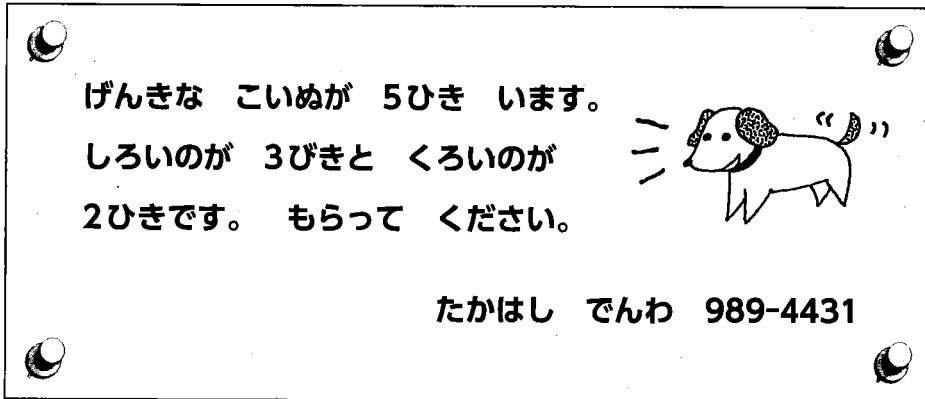 げんきな　こいぬが　5ひき　います。
しろいのが　3びきと　くろいのが
2ひきです。　もらって　ください。
たかはし　でんわ　989-4431